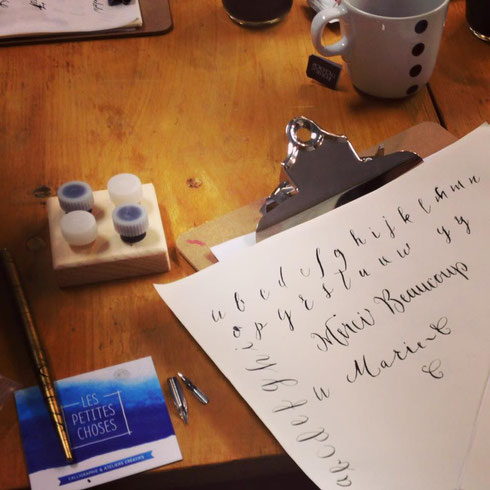 a b c d e f g h i j k l m n
o p q r s t u v w x y
Merci Beaucoup
Marie-C
C
a b c d e f g h i
LES
PETITES
CHOSES
CALLIGRAPHIE & ATELIERS CRÉATIFS